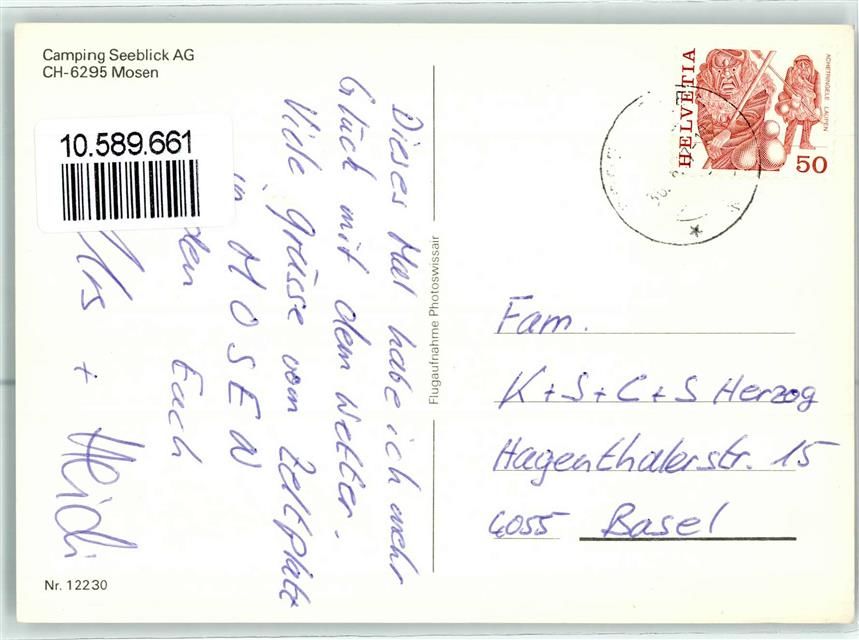 Camping Seeblick AG
CH-6295 Mosen
10.589.661
Dieses Mal habe ich mehr
Glück mit dem Wetter.
Viele Grüsse vom Zeltplatz
in MOSEN
Euch
+ Heidi
Nr. 12230
Flugaufnahme Photoswissair
HELVETIA
ACHETRINGELE LAUPEN
50
Fam.
K+S+C+S Herzog
Hagenthalerstr. 15
4055 Basel